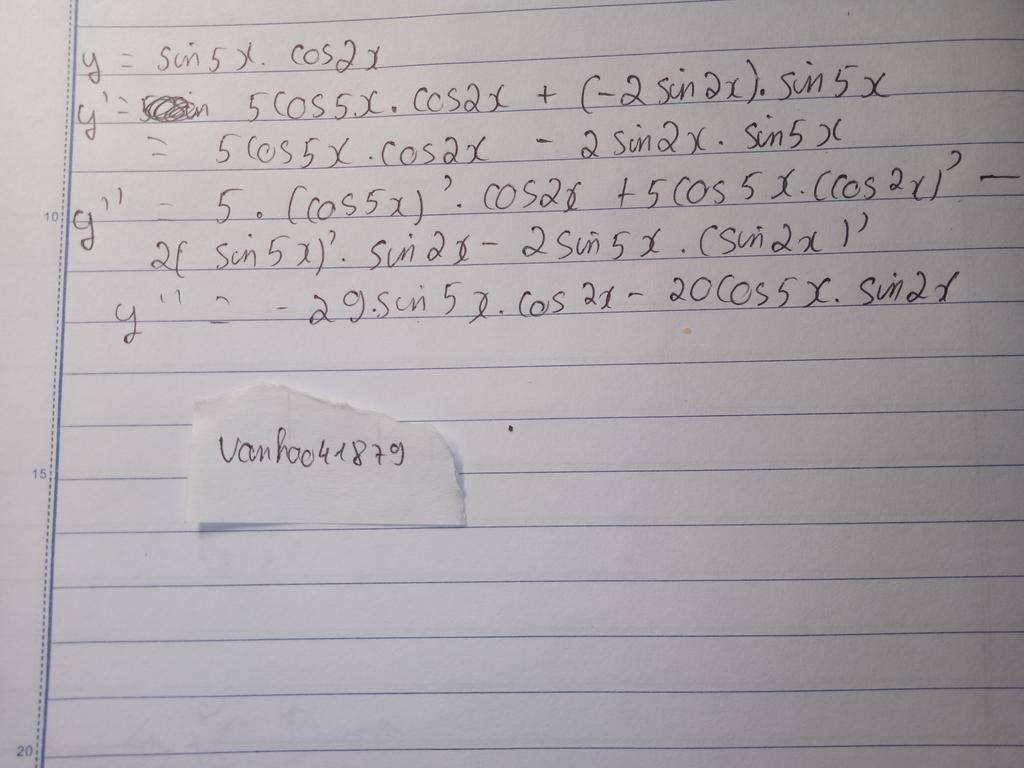 y = sin5x. cos2x
y' = 5cos5x.cos2x + (-2sin2x).sin5x
= 5cos5x.cos2x - 2sin2x.sin5x
10 y'' = 5.(cos5x)'.cos2x + 5cos5x.(cos2x)' -
2(sin5x)'.sin2x - 2sin5x.(sin2x)'
y'' = -29.sin5x.cos2x - 20cos5x.sin2x
vanhao41879
15
20